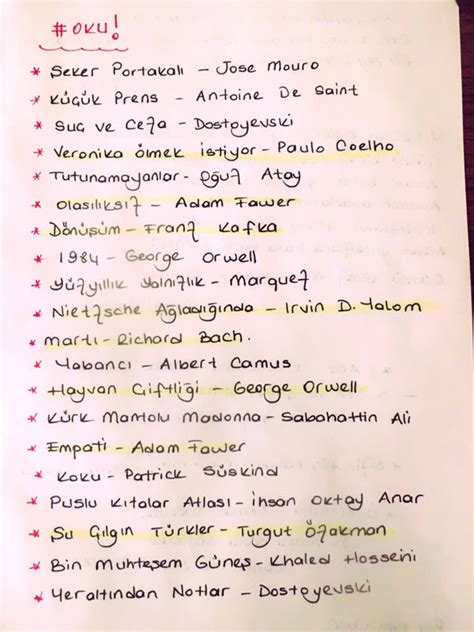 #OKU!
* Şeker Portakalı - Jose Mouro
* Küçük Prens - Antoine De Saint
* Suç ve Ceza - Dostoyevski
* Veronika ölmek istiyor - Paulo Coelho
* Tutunamayanlar - Oğuz Atay
* Olasılıksız - Adam Fawer
* Dönüşüm - Franz Kafka
* 1984 - George Orwell
* Yüzyıllık Yalnızlık - Marquez
* Nietzsche Ağladığında - Irvin D. Yalom
* martı - Richard Bach.
* Yabancı - Albert Camus
* Hayvan Çiftliği - George Orwell
* Kürk Mantolu Madonna - Sabahattin Ali
* Empati - Adam Fawer
* Koku - Patrick Süskind
* Puslu Kıtalar Atlası - ihsan Oktay Anar
* Şu Çılgın Türkler - Turgut Özakman
* Bin Muhteşem Güneş - Khaled Hosseini
* Yeraltından Notlar - Dostoyevski